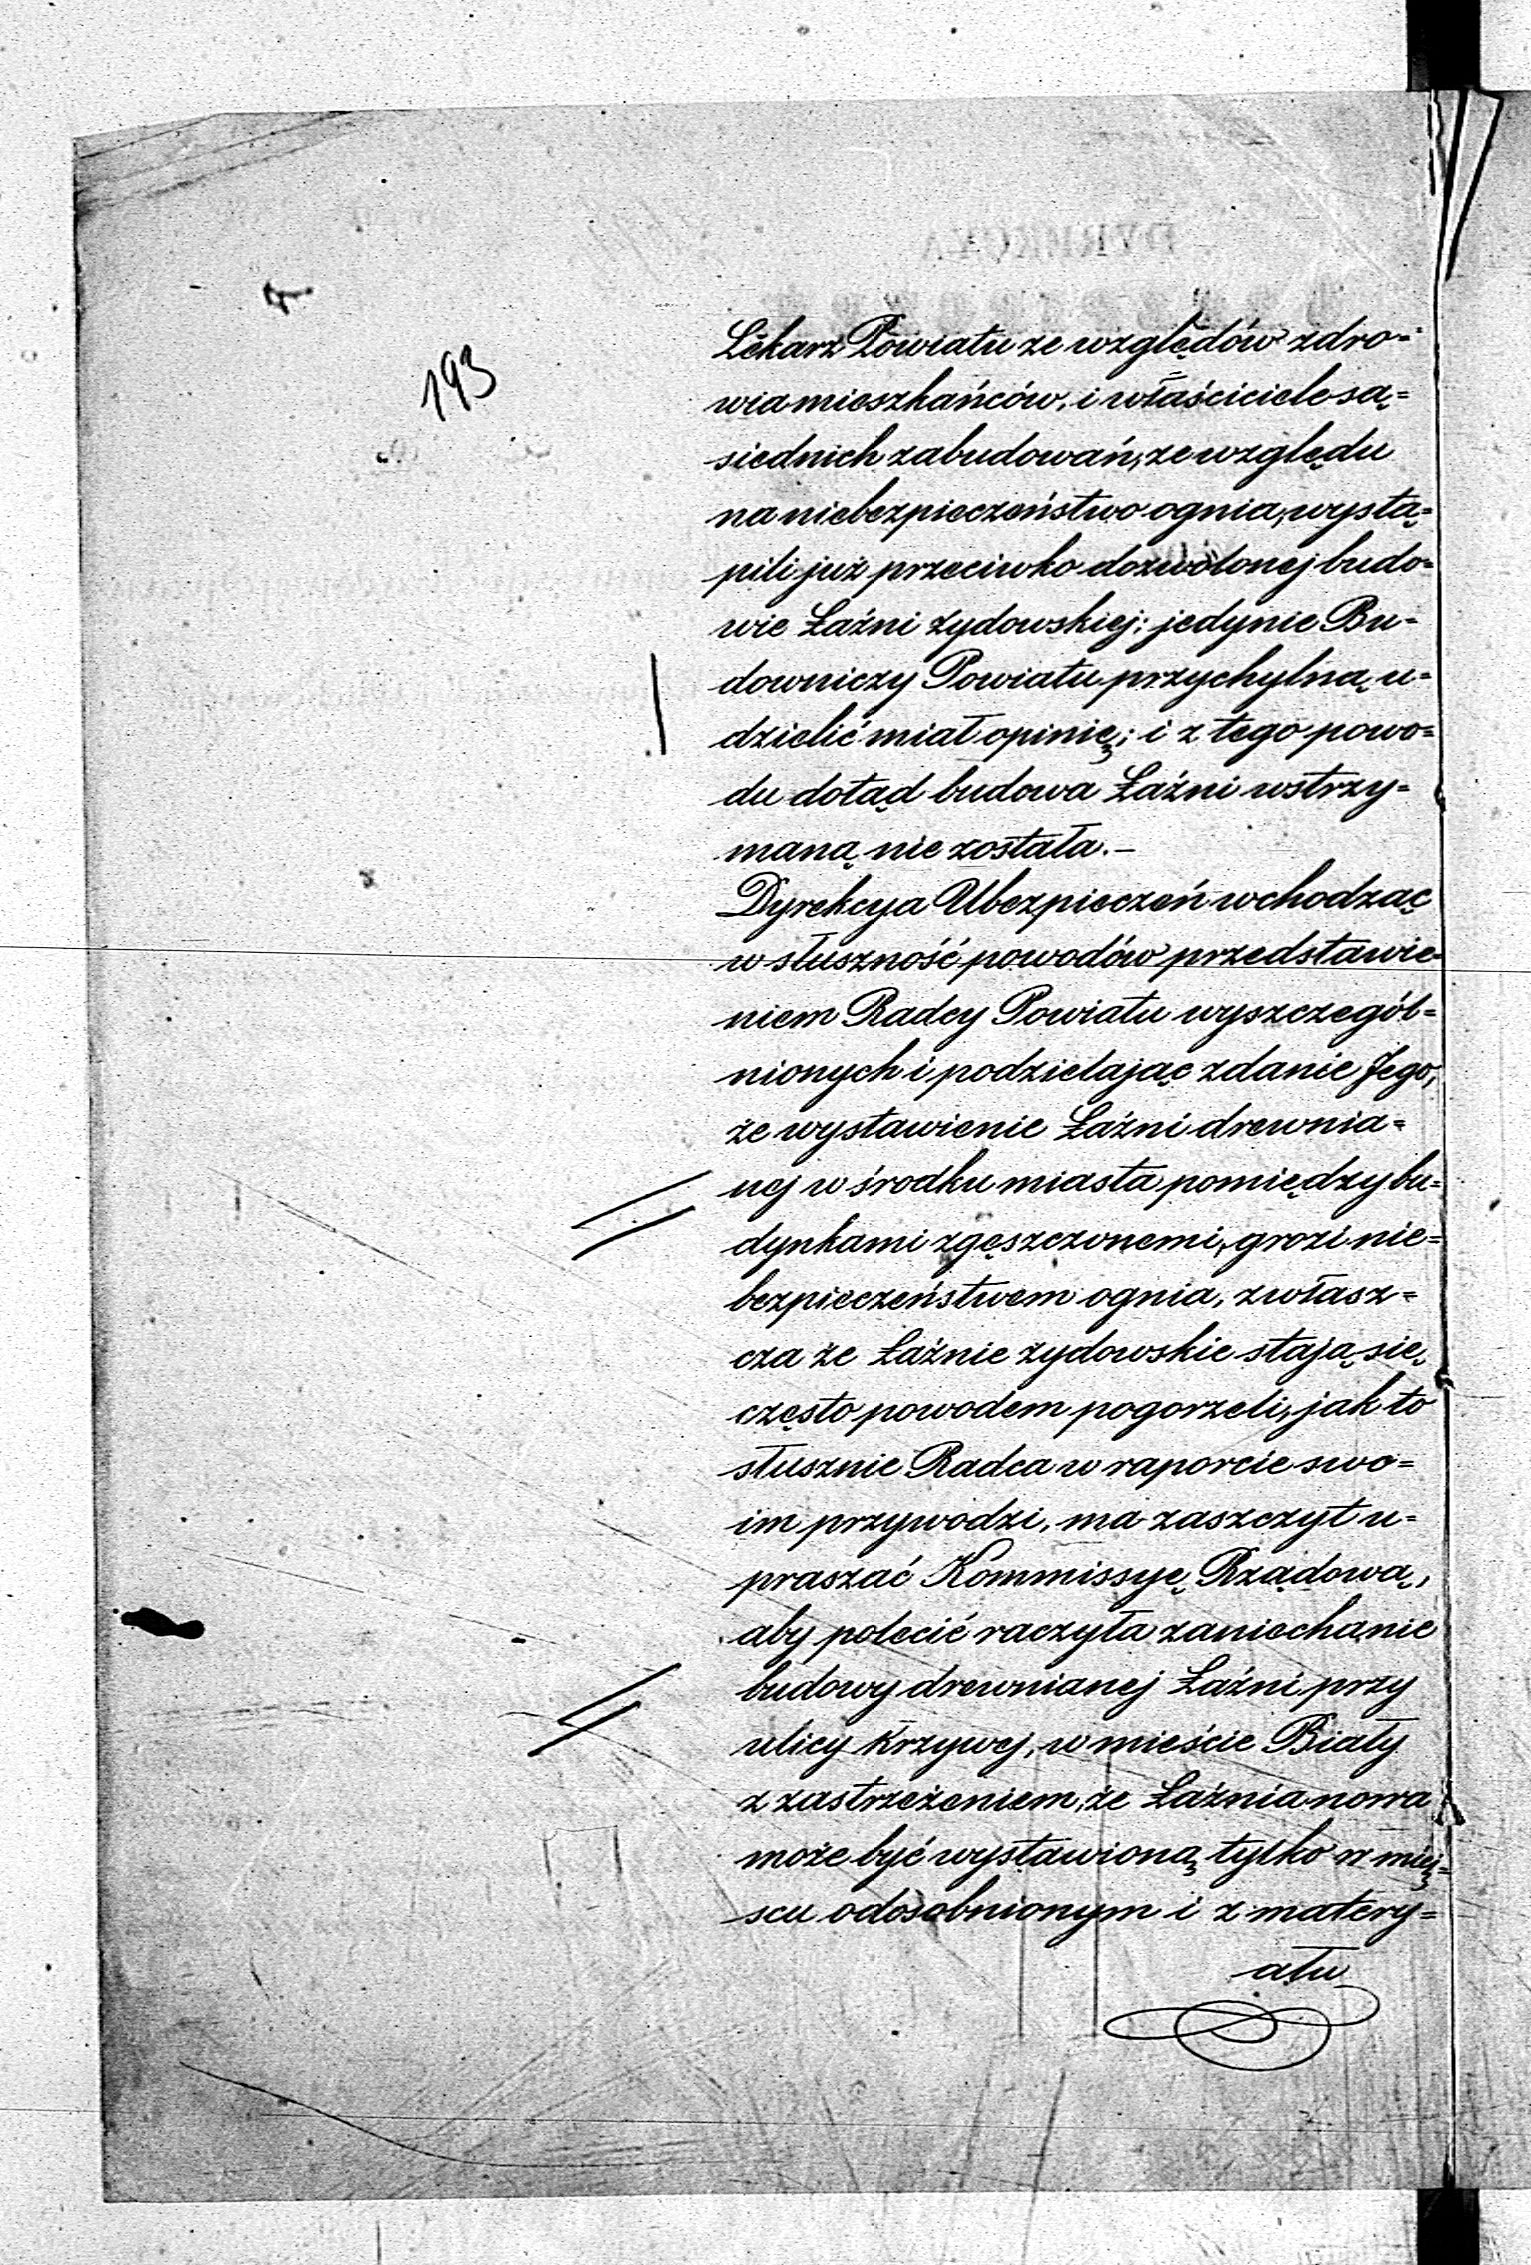 193
Lekarz Powiatu ze względów zdro=
wia mieszkańców, i właściciele są=
siednich zabudowań, ze względu
na niebezpieczeństwo ognia, wystą=
pili już przeciwko dozwolonej budo=
wie Łaźni żydowskiej; jedynie Bu=
downiczy Powiatu przychylną u=
dzielić miał opinię; i z tego powo=
du dotąd budowa Łaźni wstrzy=
maną nie została.—
Dyrekcya Ubezpieczeń wchodząc
w słuszność powodów przedstawie=
niem Radcy Powiatu wyszczegól=
nionych i podzielając zdanie Jego,
że wystawienie Łaźni drewnia=
nej w środku miasta pomiędzy bu=
dynkami zgęszczonemi, grozi nie=
bezpieczeństwem ognia, zwłasz=
cza że Łaźnie żydowskie stają się
często powodem pogorzeli, jak to
słusznie Radca w raporcie swo=
im przywodzi, ma zaszczyt u=
praszać Kommissyę Rządową,
aby polecić raczyła zaniechanie
budowy drewnianej Łaźni przy
ulicy Krzywej, w mieście Biały
z zastrzeżeniem, że Łaźnia nowa
może być wystawioną tylko w miej=
scu odosobnionym i z matery=
ału